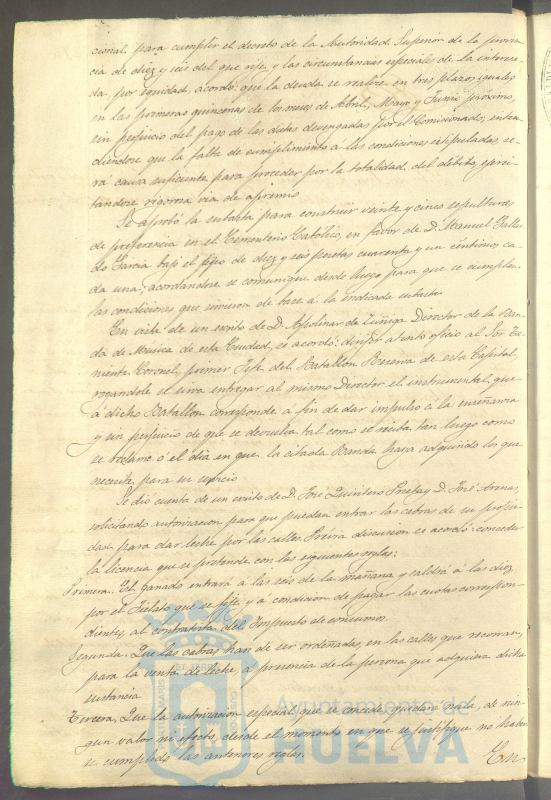 cional, para cumplir el decreto de la Autoridad Superior de la provin
cia de diez y seis del que rije, y las circunstancias especiales de la interesa
da, por equidad, acordó: que la deuda se realice en tres plazos iguales
en las primeras quincenas de los meses de Abril, Mayo y Junio próximo,
sin perjuicio del pago de las dietas devengadas por el Comisionado, enten
diendose que la falta de cumplimiento a las condiciones estipuladas, se-
rá causa suficiente para proceder por la totalidad del débito, ejerci
tandose rigorosa via de apremio
Se aprobó la subasta para construir veinte y cinco sepulturas
de preferencia en el Cementerio Católico, en favor de D. Manuel Galle
do Garcia bajo el tipo de diez y seis pesetas cuarenta y un céntimos ca
da una; acordandose se comunique desde luego para que se cumplan
las condiciones que sirvieron de base á la indicada subasta
En vista de un escrito de D. Apolinar de Zúñiga Director de la Ban
da de Música de esta Ciudad, se acordó: dirijir atento oficio al Sor Te
niente Coronel, primer Jefe del Batallon Reserva de esta Capital,
rogandole se sirva entregar al mismo Director el instrumental, que
á dicho Batallon corresponde á fin de dar impulso á la enseñanza
y sin perjuicio de que se devuelva tal como se recita tan luego como
se reclame ó el dia en que la citada Banda haya adquirido los que
necesite para su servicio
Se dió cuenta de un escrito de D. José Quintero y D. José Arenas
solicitando autorizacion para que puedan entrar las cabras de su propie
dad para dar leche por las calles. Prévia discusion se acordó: conceder
la licencia que se pretende con las siguientes reglas:
Primera. El Ganado entrará á las seis de la mañana y saldrá á las diez
por el Fielato que se fije y á condicion de pagar las cuotas correspon-
dientes al contratista del Impuesto de consumos.
Segunda. Que las cabras han de ser ordeñadas, en las calles que recorran,
para la venta de leche, a presencia de la persona que adquiera dicha
sustancia
Tercera, Que la autorizacion especial que se concede quedará nula, de nin-
gun valor ni efecto, desde el momento en que se justifique no haber
se cumplido las anteriores reglas.
En
Ayuntamiento de
HUELVA